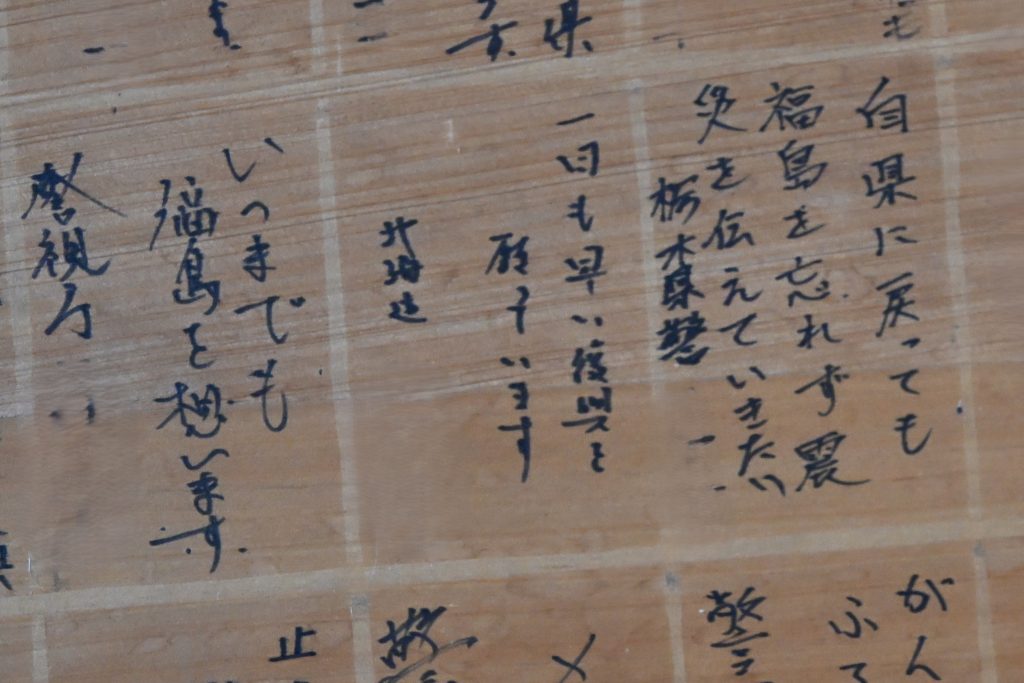 自県に戻っても
福島を忘れず震
災を伝えていきたい
栃木県警
一日も早い復興を
願っています
北海道
いつまでも
福島を想います
警視庁
がん
ふ
警
メ
止
県
す
も